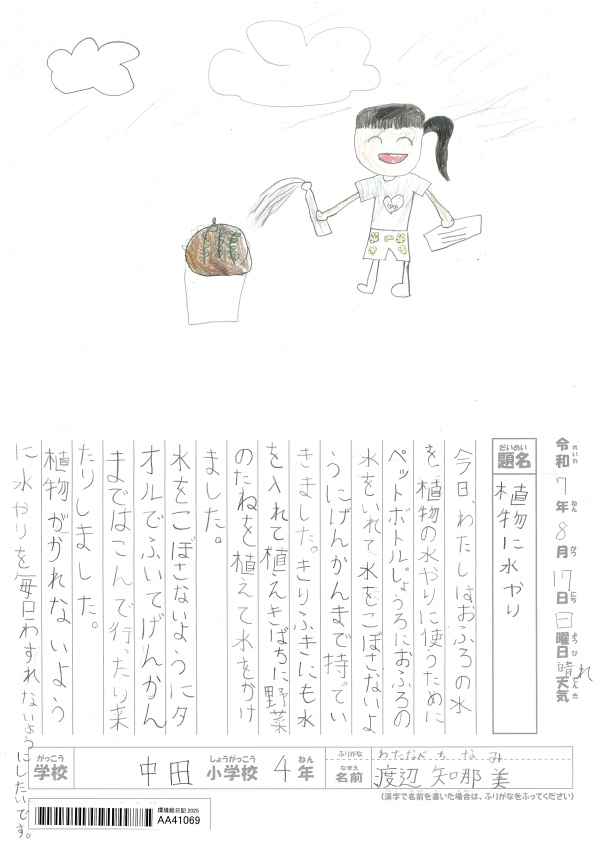 令和7年8月17日日曜日晴れ天気
れいわ ねん がつ にち ようび てんき
だいめい
題名
植物に水やり
今日、わたしはおふろの水
を、植物の水やりに使うために
ペットボトルじょうろにおふろの
水をいれて水をこぼさないよ
うにげんかんまで持ってい
きました。きりふきにも水
を入れて植えきばちに野菜
のたねを植えて水をかけ
ました。
水をこぼさないようにタ
オルでふいてげんかん
まではこんで行ったり来
たりしました。
植物がかれないよう
に水やりを毎日わすれないようにしたいです。
がっこう しょうがっこう ねん
学校 中田 小学校 4年
ふりがな わたなべ ちなみ
なまえ
名前 渡辺 知那美
(漢字で名前を書いた場合は、ふりがなをふってください)
環境絵日記 2025
AA41069